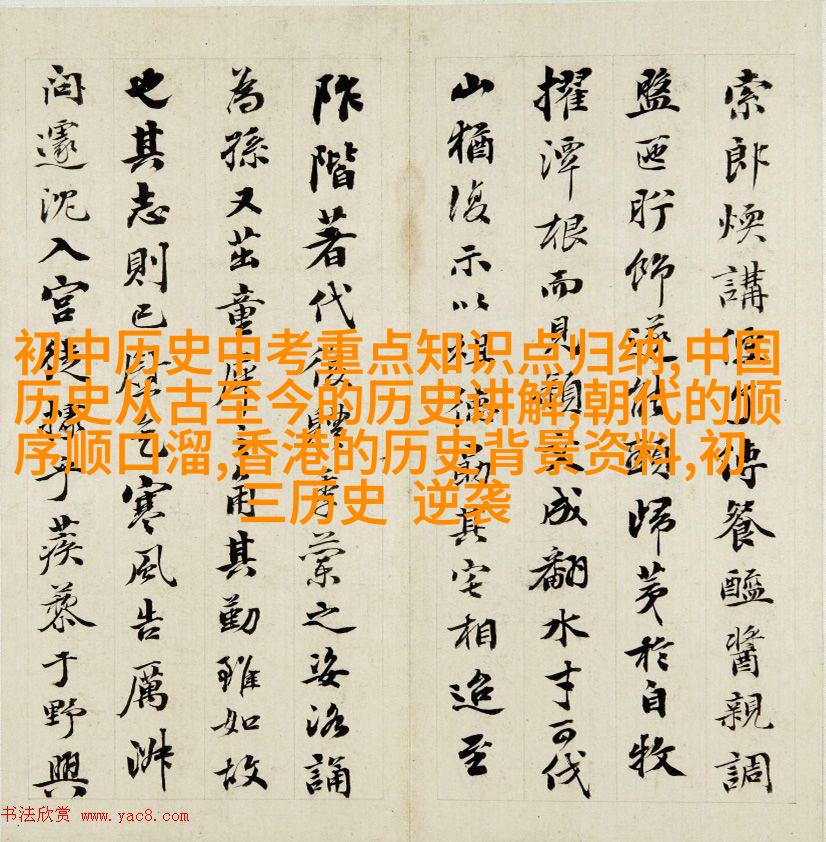 索郎煥講傅餐醯醬親調
盥匜飾歸茅於自牧
擢潭根而見成翻水才可伐
山猶復示以其宅相迨至
阼階著代之姿洛誦
為孫又茁童角其勤雖如故
也其志則已乞寒風告厲
沈入宮乎蒺藜于野興
初中历史中考重点知识点归纳,中国
历史从古至今的历史讲解,朝代的顺
序顺口溜,香港的历史背景资料,初
三历史 逆袭
书法欣赏 www.yac8.com